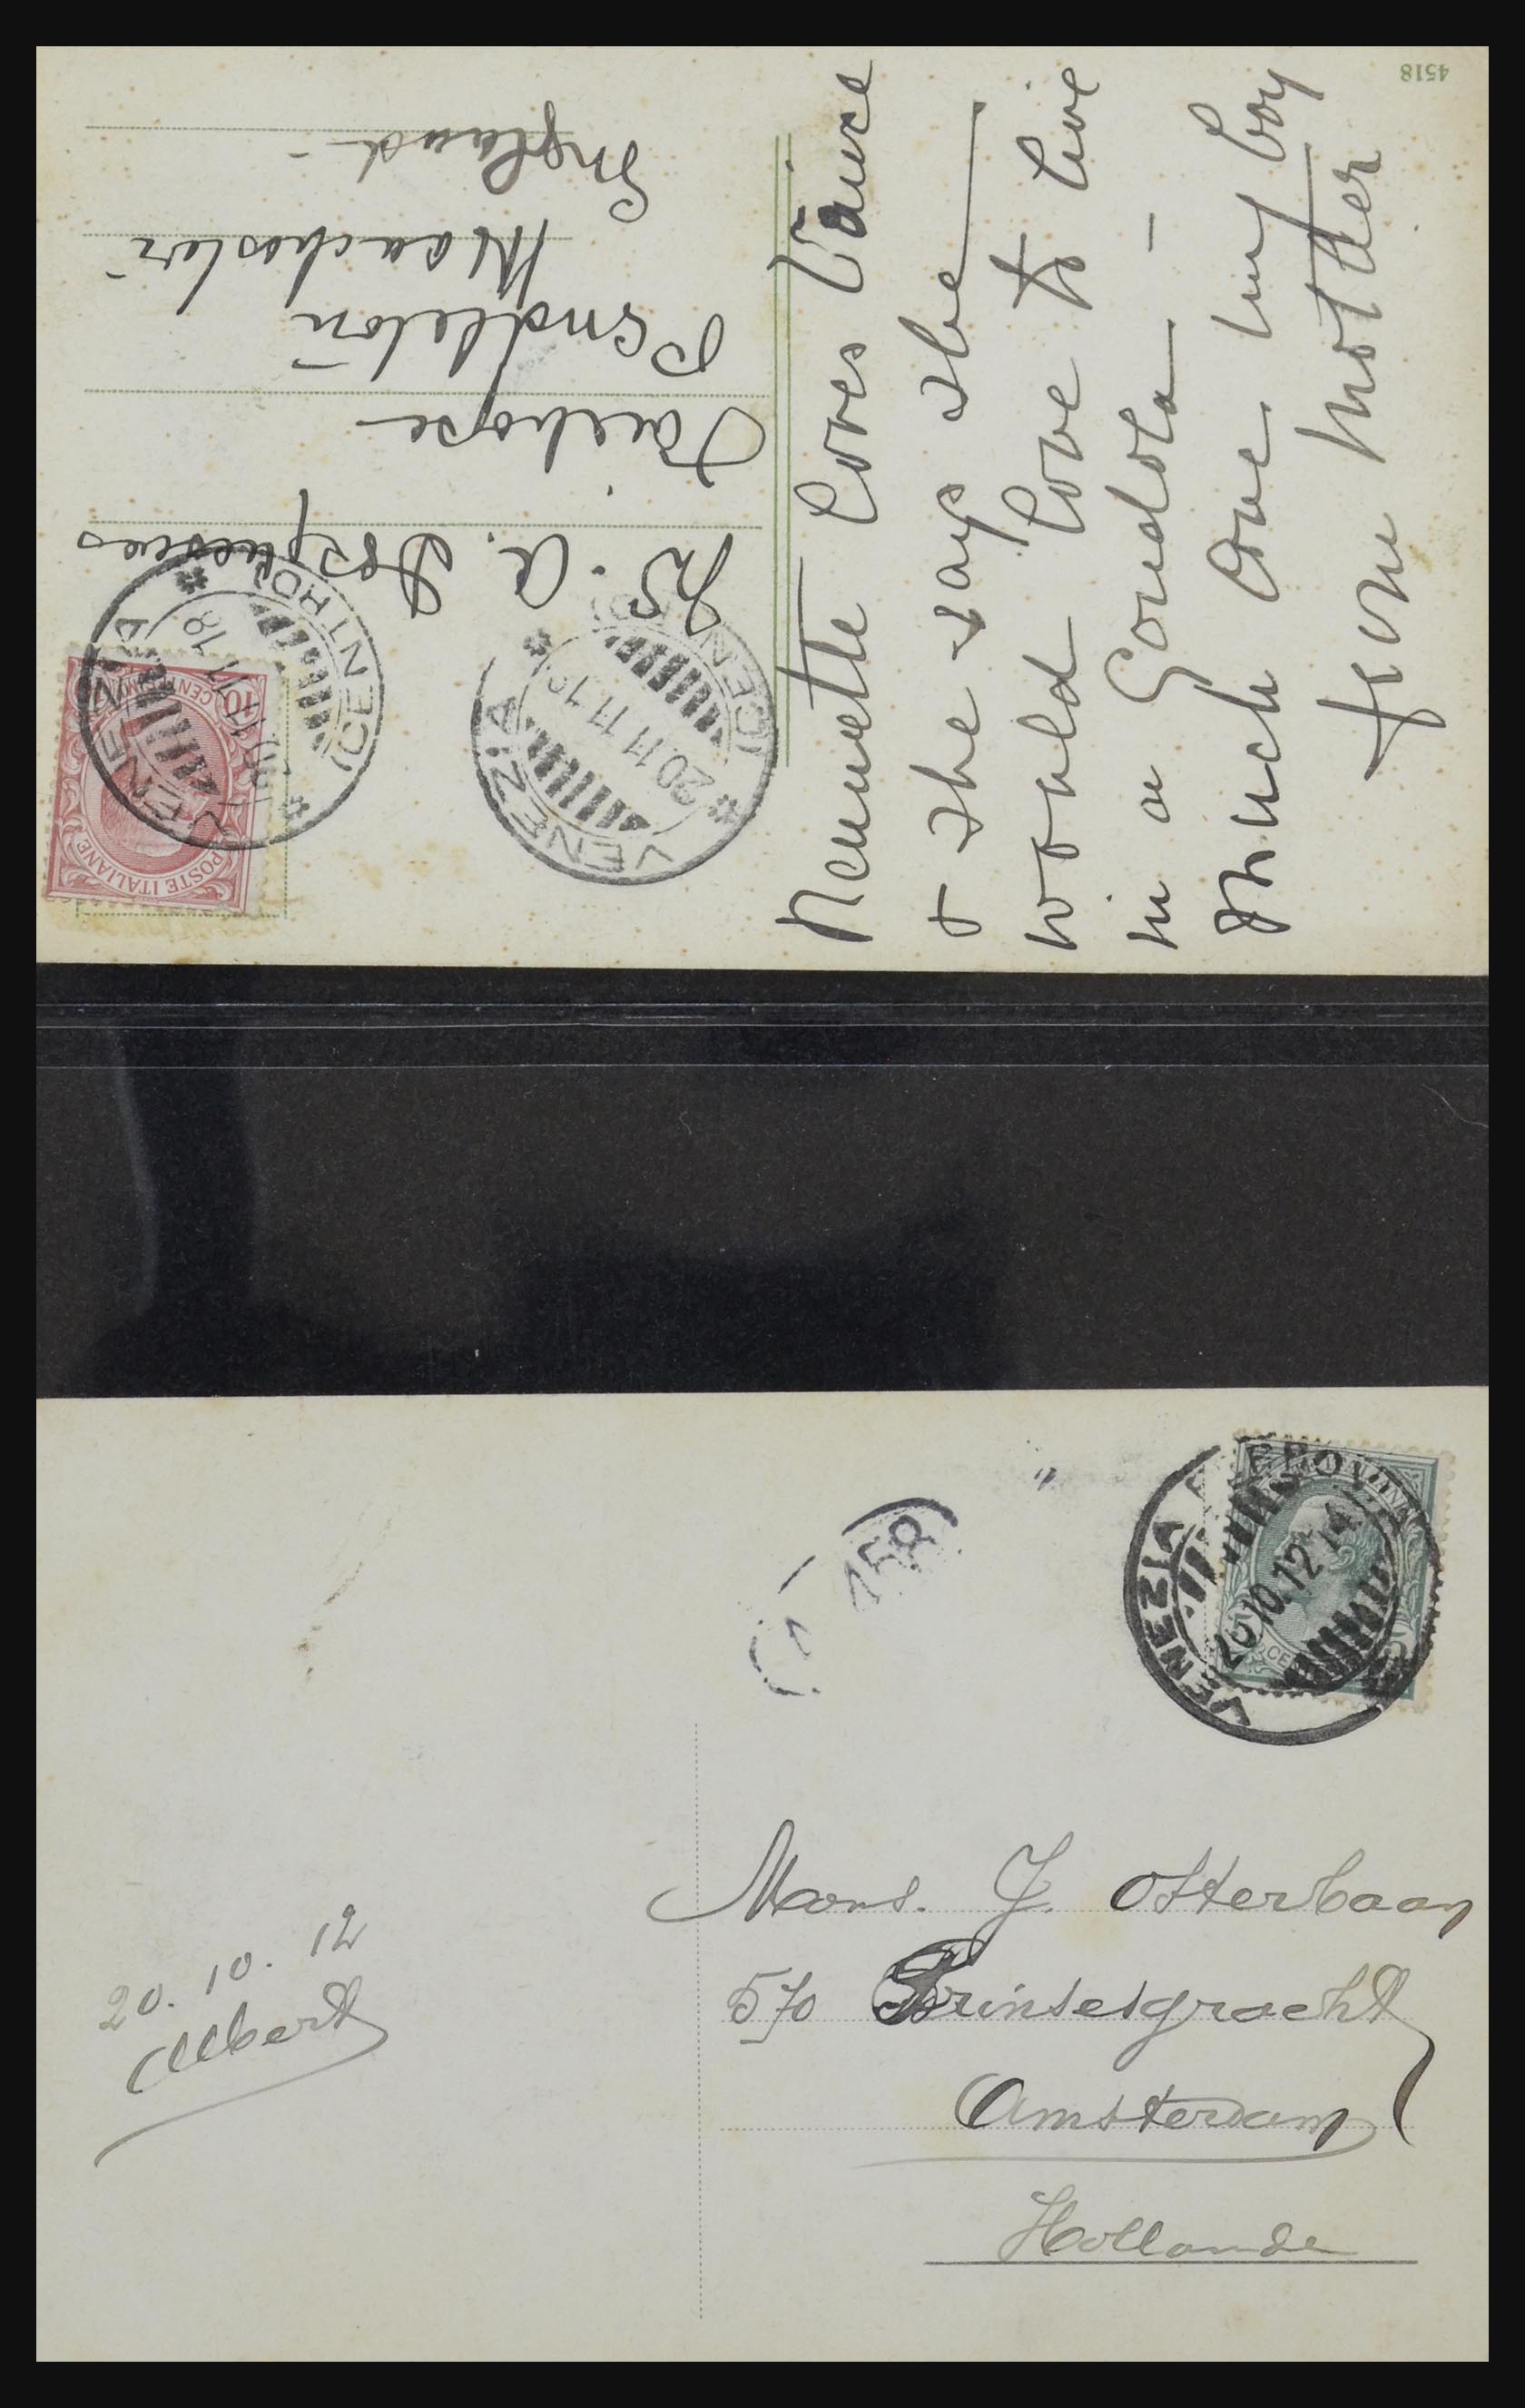 4518
Nennette loves Venice
& she says she
would love to live
in a Gondola —
Much love my boy
from Mother
W. A.
Fairhope
Pendleton
Manchester
England
POSTE ITALIANE
10
VENEZIA
20.11.11.18
(CENTRO)
VENEZIA
20.11.11.18
(CENTRO)
VENEZIA FERROVIA
20.10.12
458
Mons. J. Otterbaan
570 Prinsesgracht
Amsterdam
Hollande
20. 10. 12
Albert